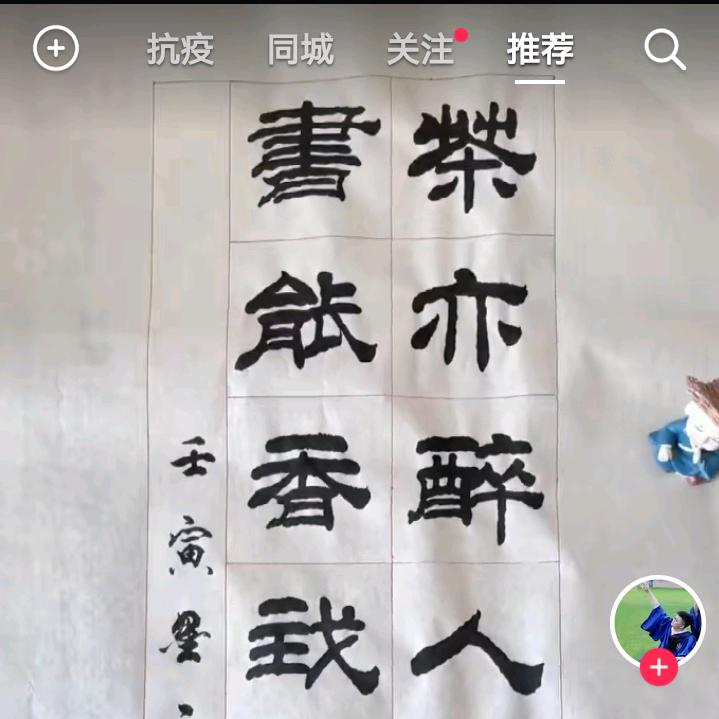 抗疫 同城 关注 推荐
茶亦醉人
書能香我
壬寅